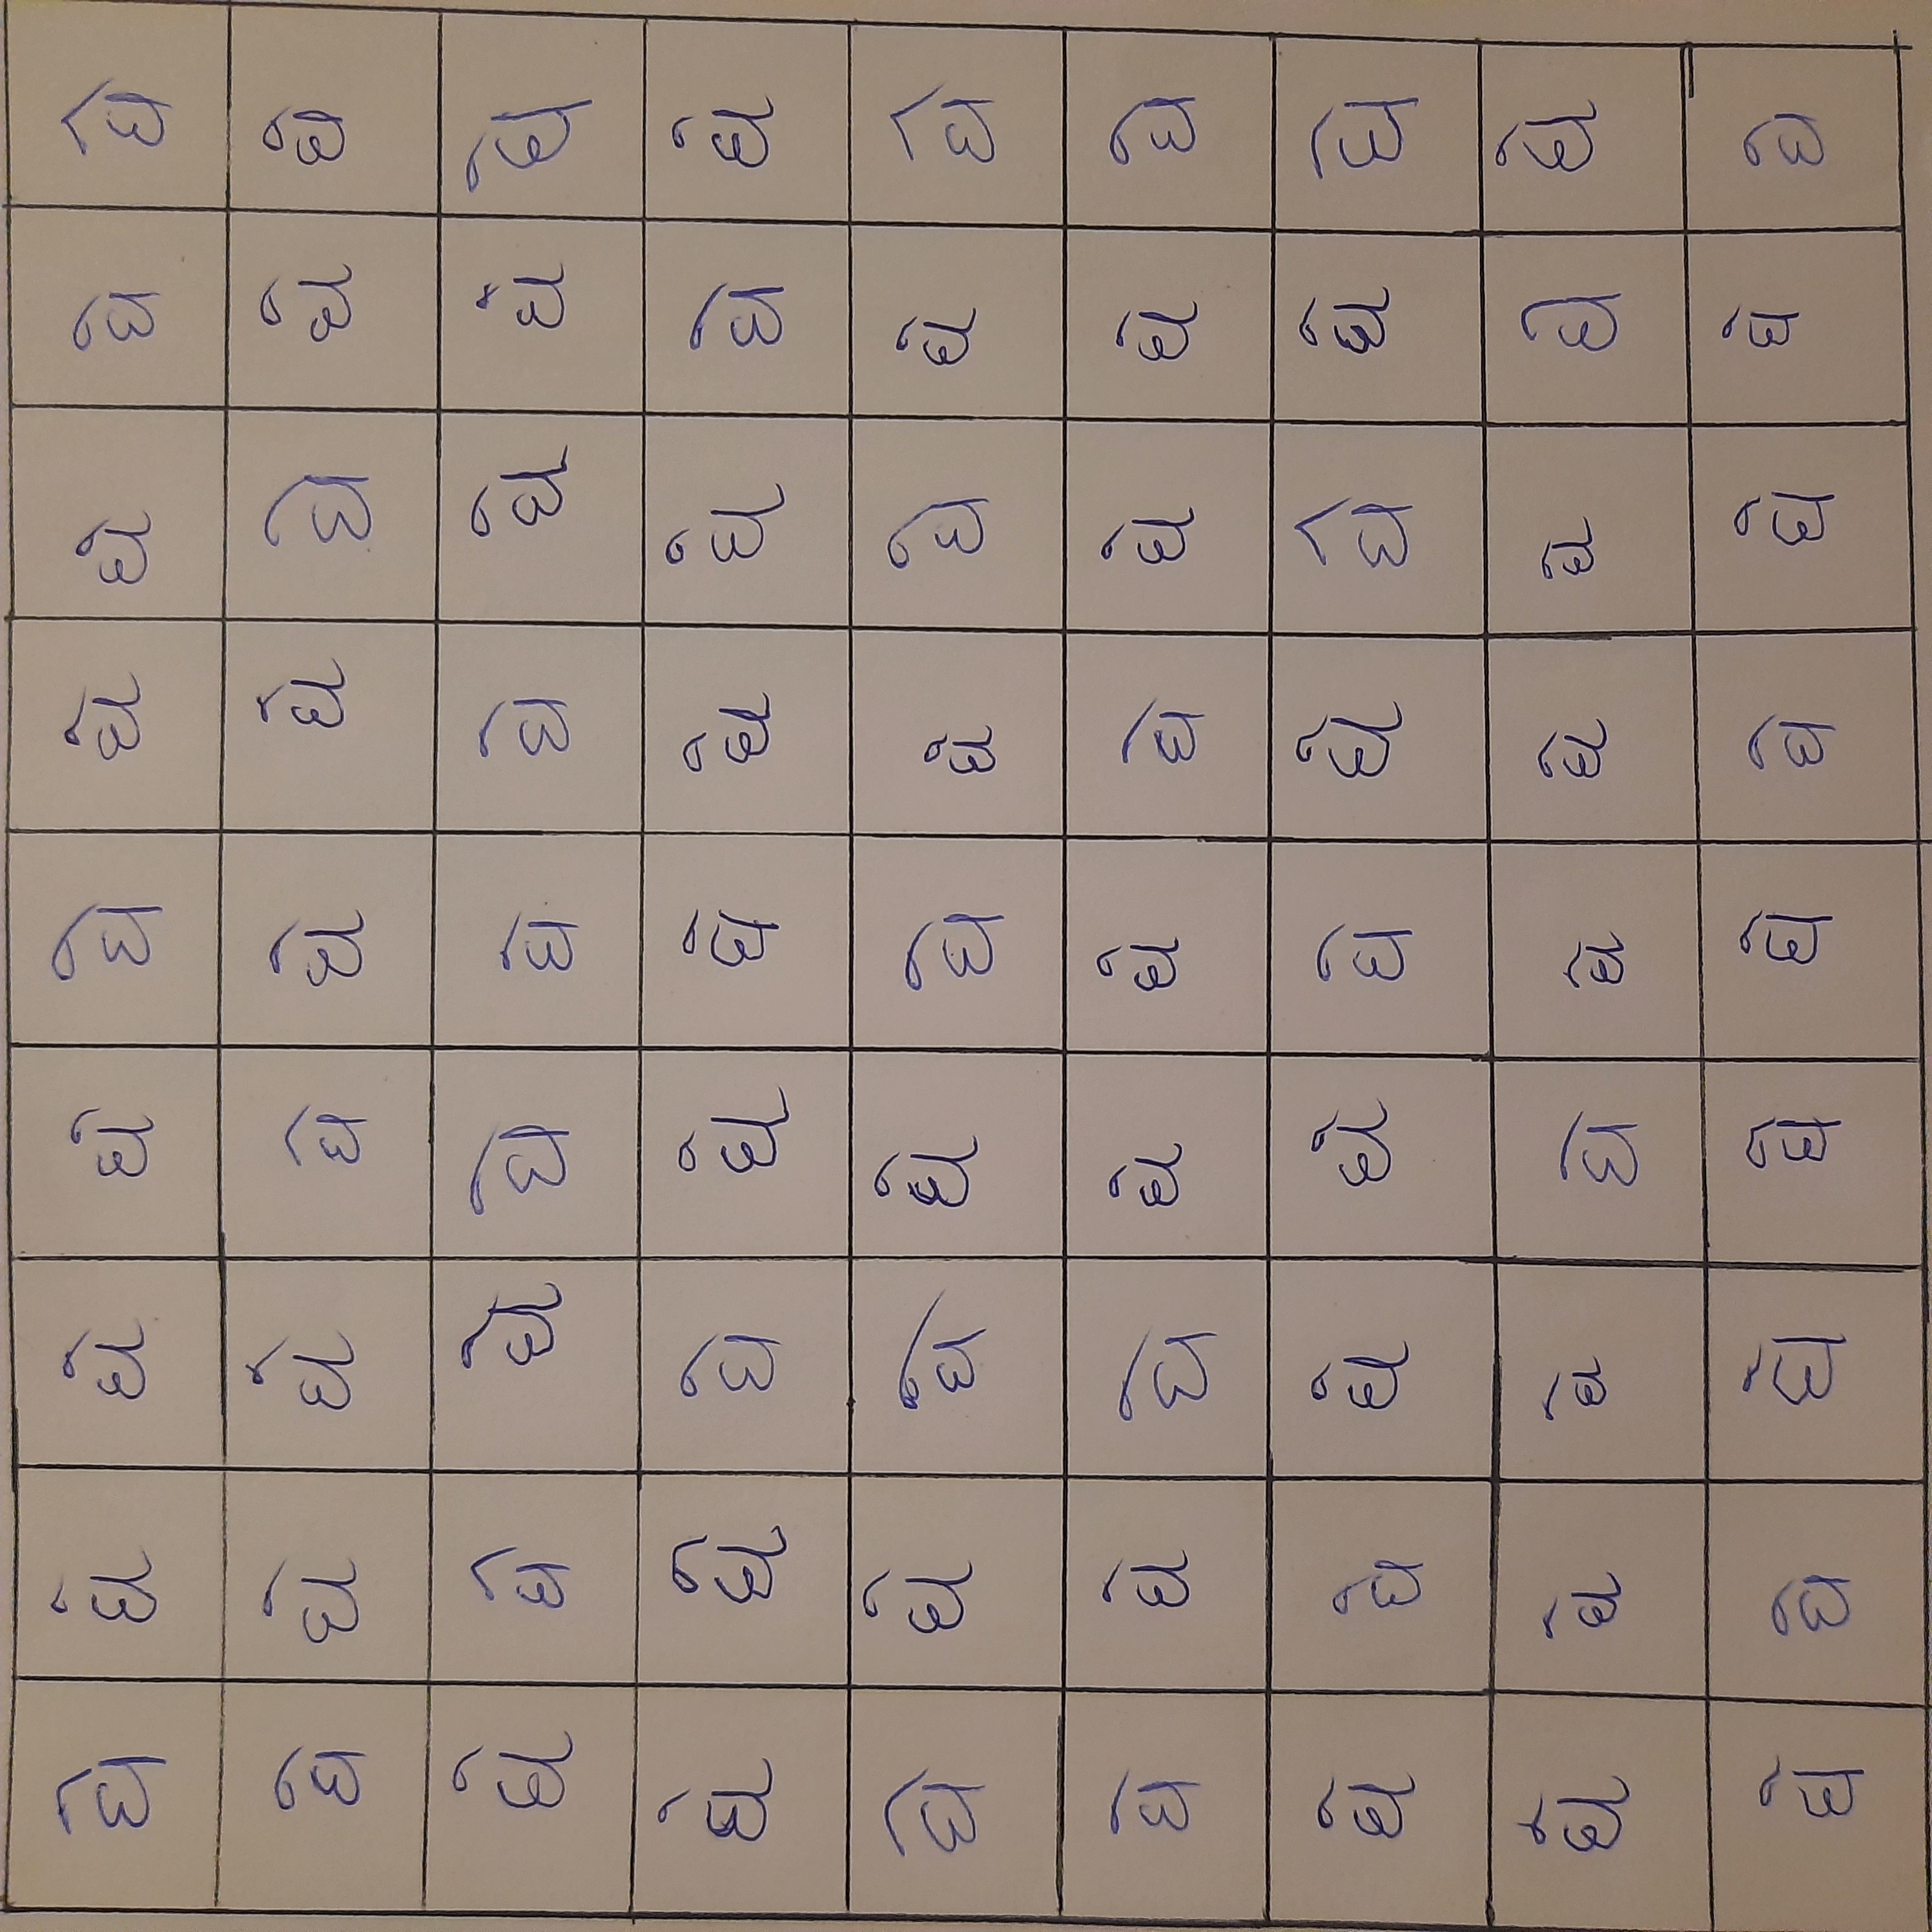 ઘે ઘે ઘે ઘે ઘે ઘે ઘે ઘે ઘે
ઘે ઘે ઘે ઘે ઘે ઘે ઘે ઘે ઘે
ઘે ઘે ઘે ઘે ઘે ઘે ઘે ઘે ઘે
ઘે ઘે ઘે ઘે ઘે ઘે ઘે ઘે ઘે
ઘે ઘે ઘે ઘે ઘે ઘે ઘે ઘે ઘે
ઘે ઘે ઘે ઘે ઘે ઘે ઘે ઘે ઘે
ઘે ઘે ઘે ઘે ઘે ઘે ઘે ઘે ઘે
ઘે ઘે ઘે ઘે ઘે ઘે ઘે ઘે ઘે
ઘે ઘે ઘે ઘે ઘે ઘે ઘે ઘે ઘે